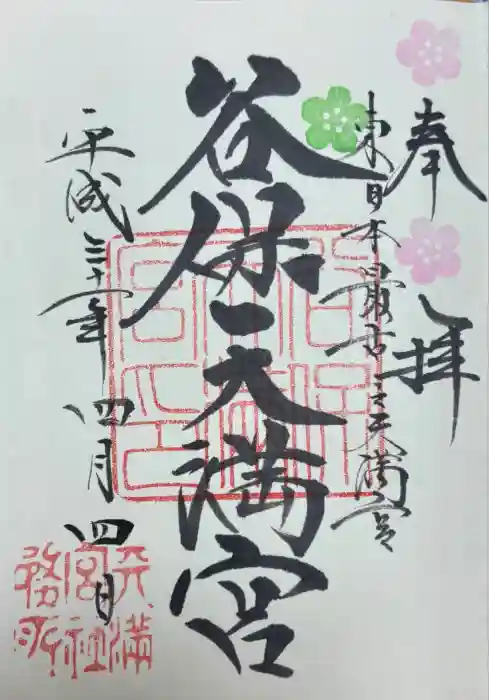 奉拝
東日本最古之天満宮
谷保天満宮
平成三十年四月四日
天満
宮社
務所